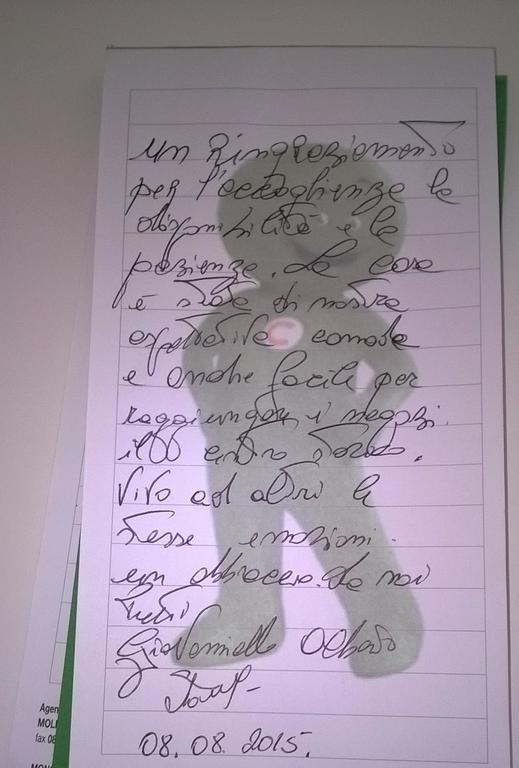 Un Ringraziamento
per l'accoglienza la
disponibilità e la
pazienza. La casa
è stata di nostra
aspettativa comoda
e anche facile per
raggiungere i negozi.
il centro storico.
Vivo ad altri le
stesse emozioni.
un abbraccio. da noi
tutti
Giovanniello
08.08.2015.
C
Agen
MOL
fax 08